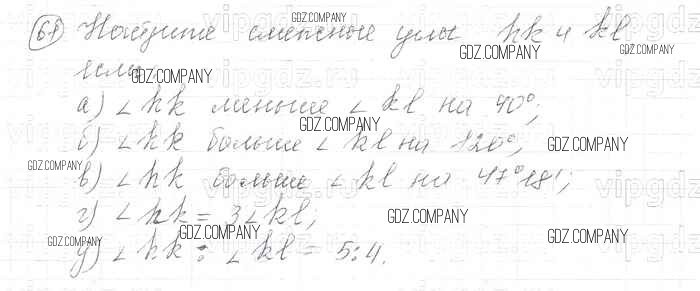 61 Найдите смежные углы hk и kl
если:
а) ∠hk меньше ∠kl на 40°;
б) ∠hk больше ∠kl на 120°;
в) ∠hk больше ∠kl на 47°18';
г) ∠hk = 3∠kl;
д) ∠hk : ∠kl = 5:4.
GDZ.COMPANY
GDZ.COMPANY
GDZ.COMPANY
GDZ.COMPANY
GDZ.COMPANY
GDZ.COMPANY
GDZ.COMPANY
GDZ.COMPANY
GDZ.COMPANY
GDZ.COMPANY
GDZ.COMPANY